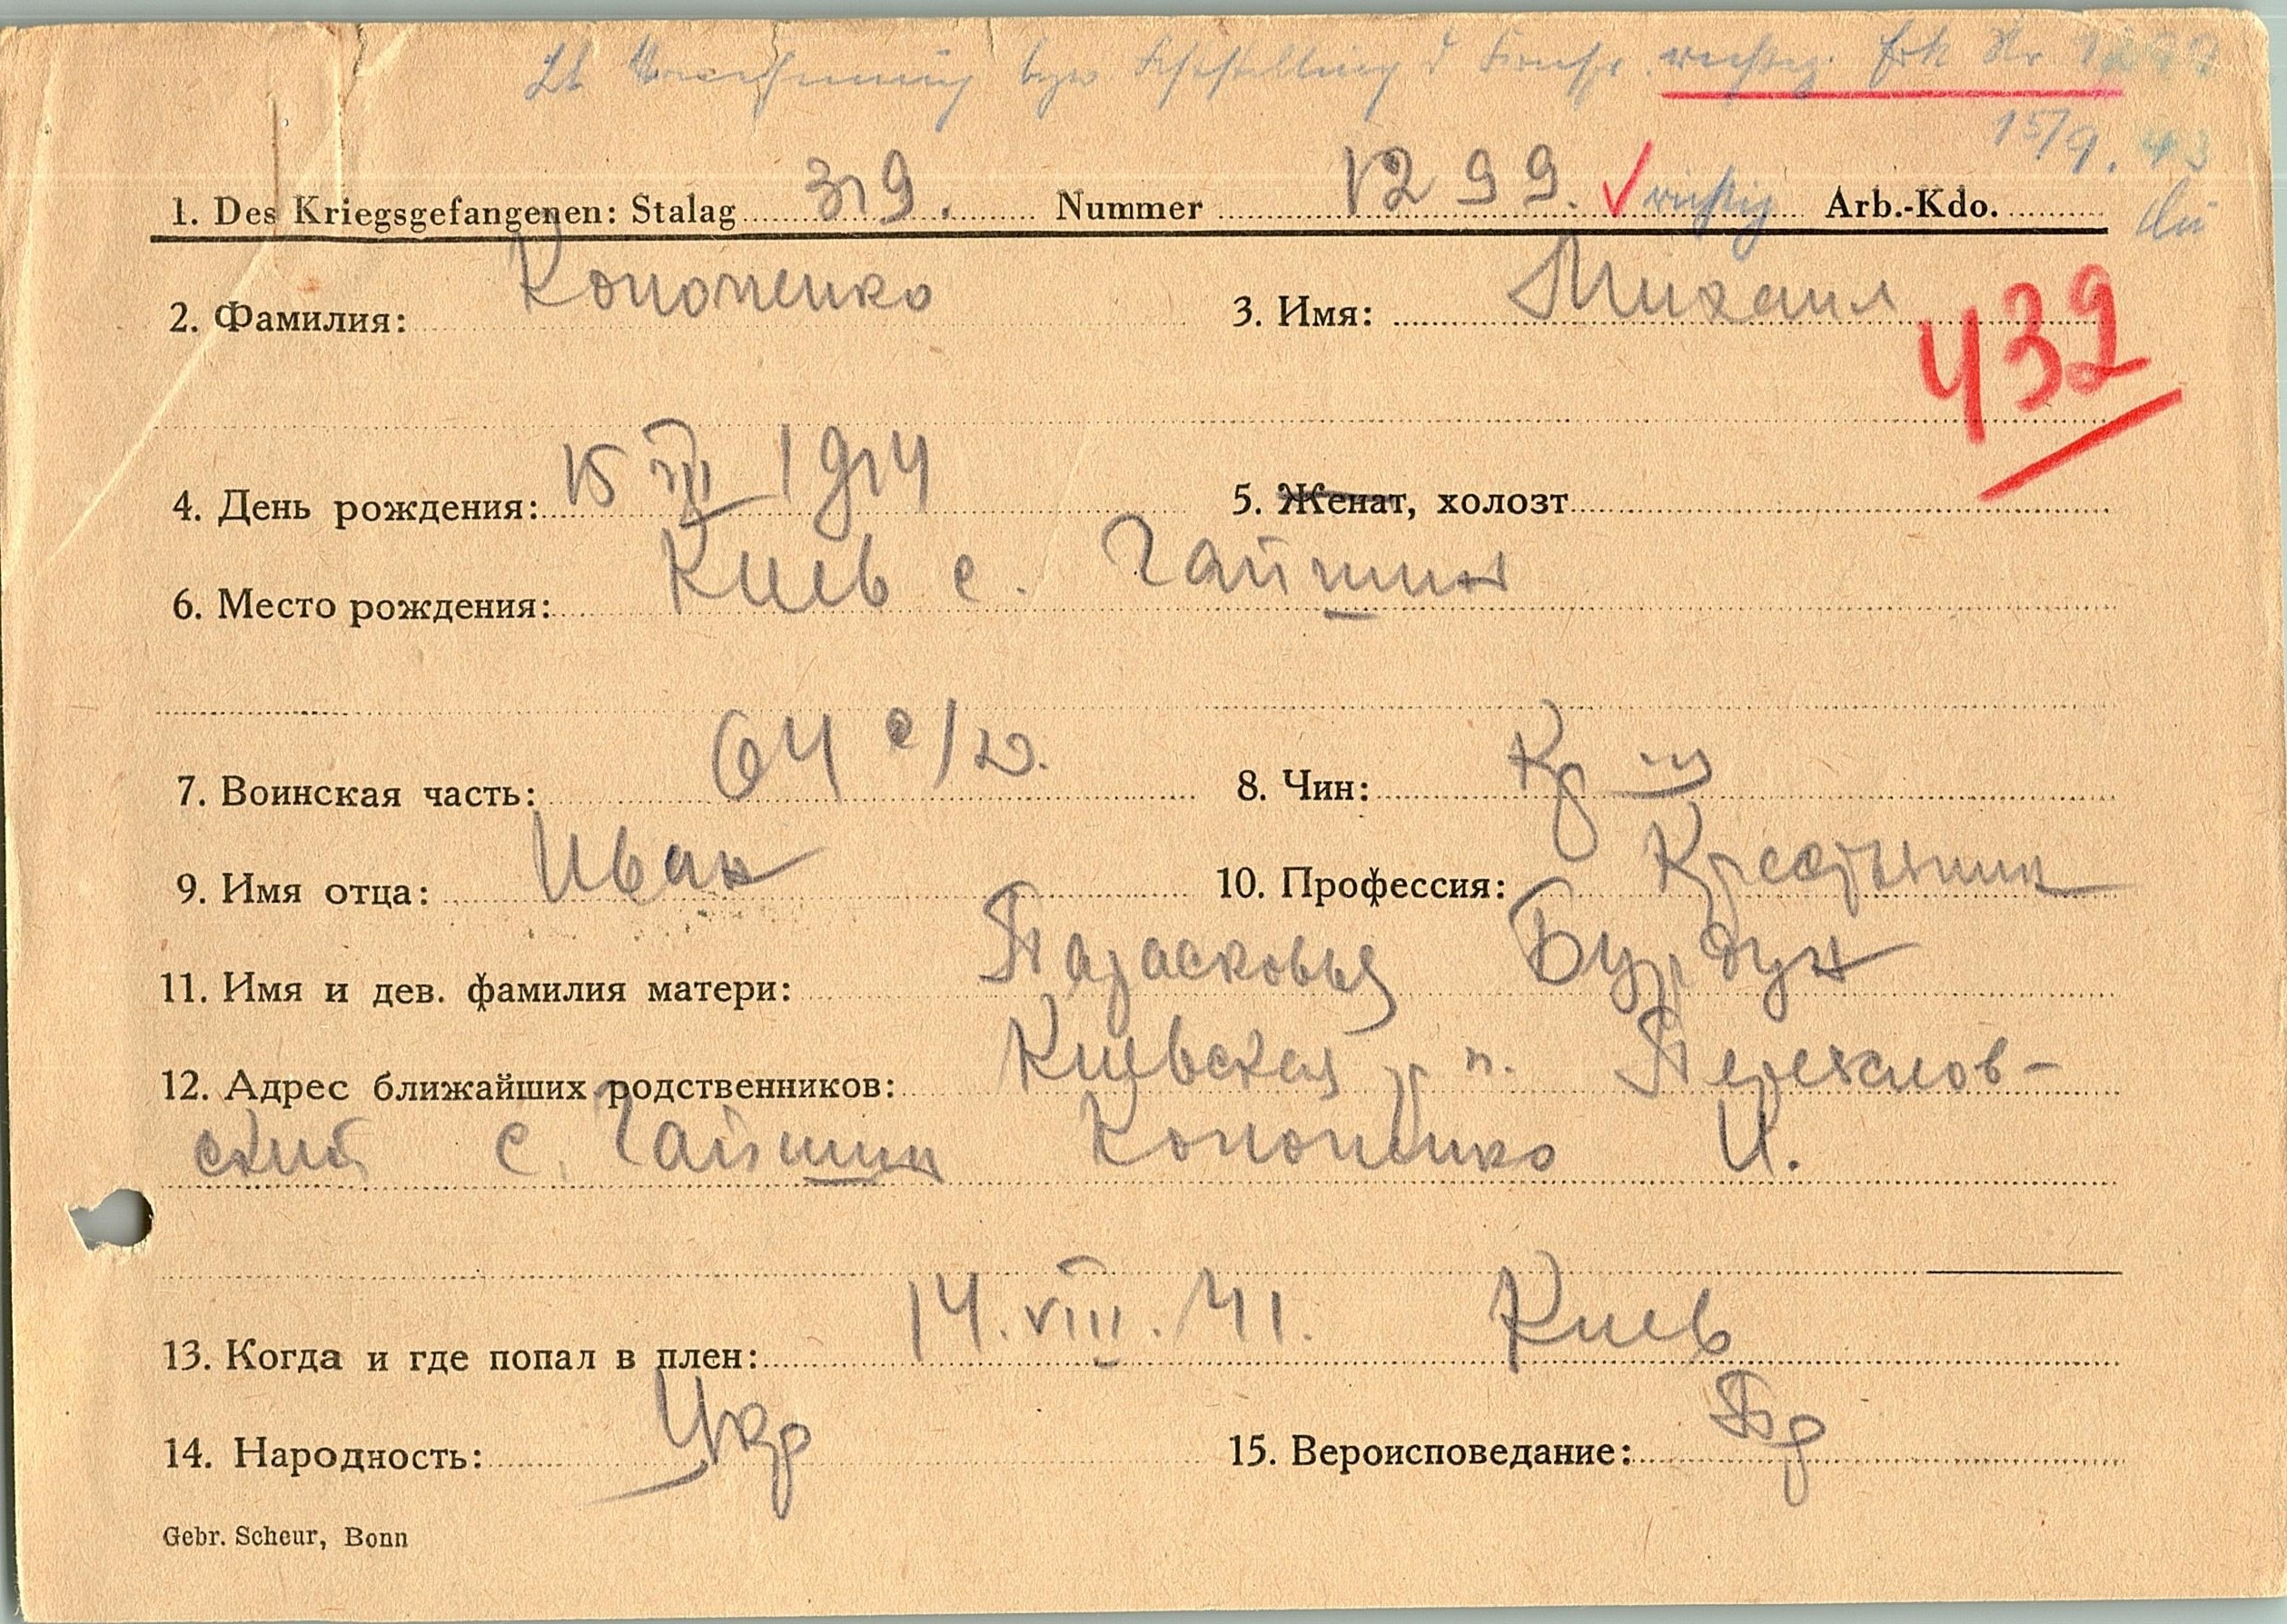 Lt Vernehmung bzw Feststellung d richtig. Erk Nr 1299
15/9. 43
1. Des Kriegsgefangenen: Stalag 319. Nummer 1299. ✓ richtig Arb.-Kdo.
2. Фамилия: Кононенко 3. Имя: Михаил
432
4. День рождения: 15 VIII 1914 5. Женат, холозт
6. Место рождения: Киев с. Гайшин
7. Воинская часть: 64 с/д. 8. Чин: Кр-ц
9. Имя отца: Иван 10. Профессия: Крестьянин
11. Имя и дев. фамилия матери: Парасковья Бурдун
12. Адрес ближайших родственников: Киевская р-н. Переяслов-
ский с. Гайшин Кононенко И.
13. Когда и где попал в плен: 14. VIII. 41. Киев
14. Народность: Укр 15. Вероисповедание: Пр
Gebr. Scheur, Bonn